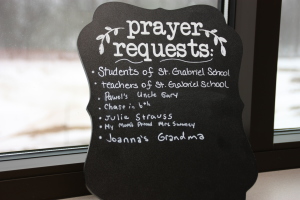 prayer
requests:
• Students of St. Gabriel School
• Teachers of St. Gabriel School
• Powel's Uncle Gary
• Chase in 6th
• Julie Strauss
• My Mom's Friend Mrs. Sweeney
• Joanna's Grandma